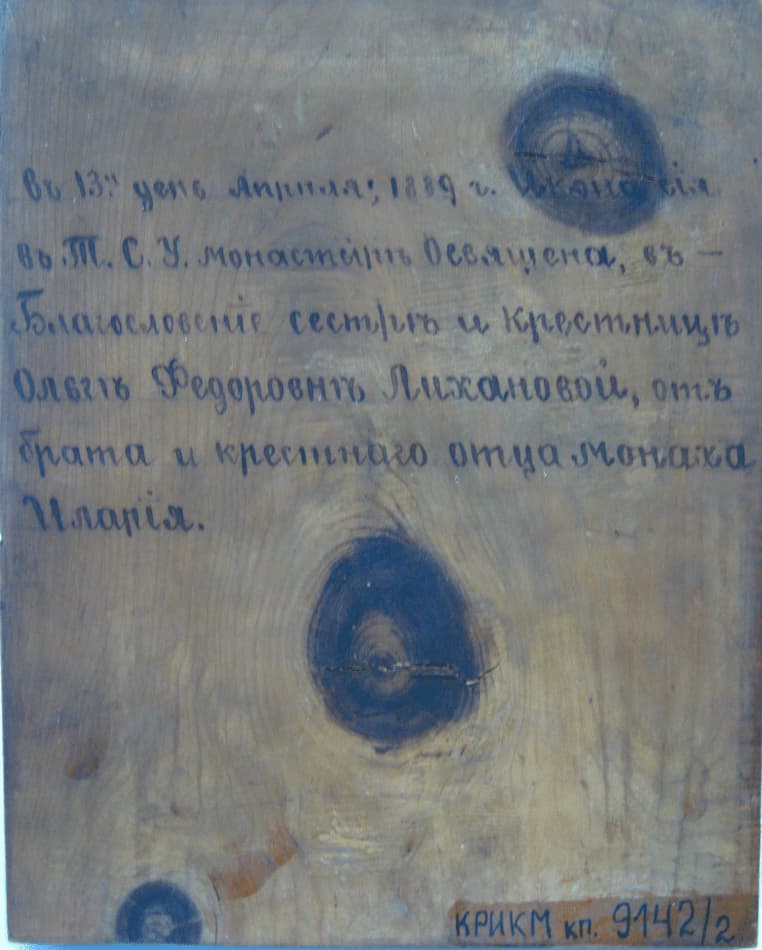 въ 13й день Апрѣля; 1889 г. Икона сія
въ Т. С. У. монастырѣ Освящена, въ –
Благословеніе сестрѣ и крестницѣ
Ольгѣ Федоровнѣ Лихановой, отъ
брата и крестнаго отца монаха
Иларія.
КРИКМ кп. 9142/2